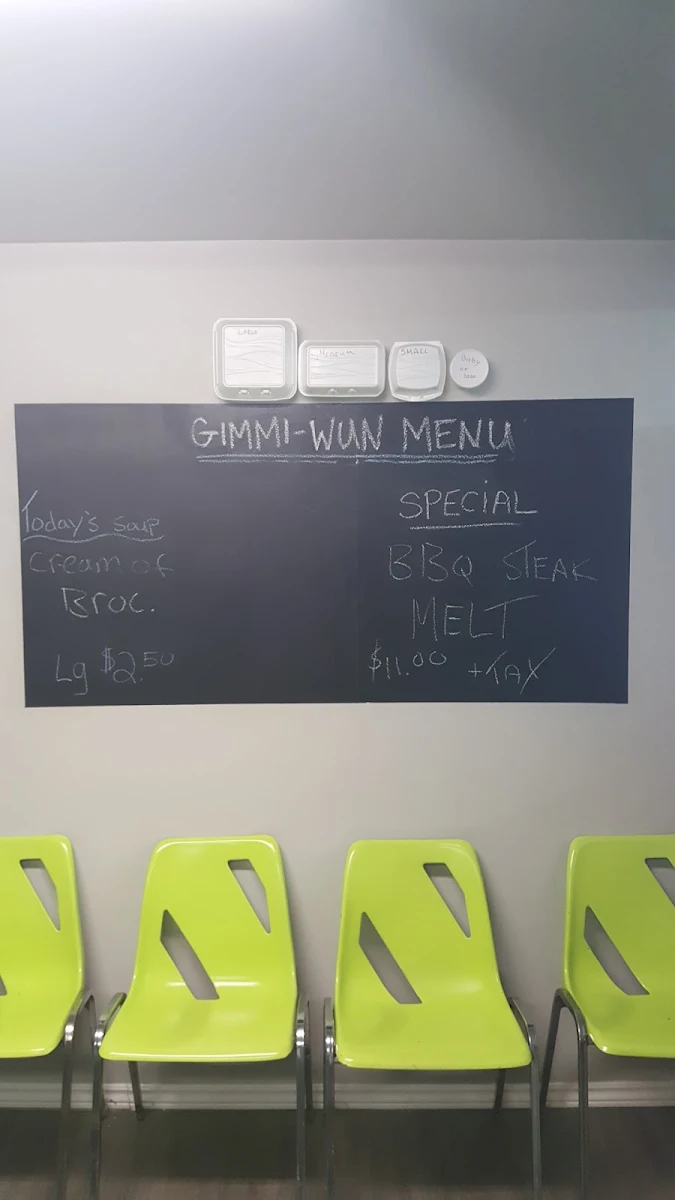 LARGE
MEDIUM
SMALL
GIMMI-WUN MENU
Today's Soup
Cream of
Broc.
Lg $2.50
SPECIAL
BBQ STEAK
MELT
$11.00 +TAX